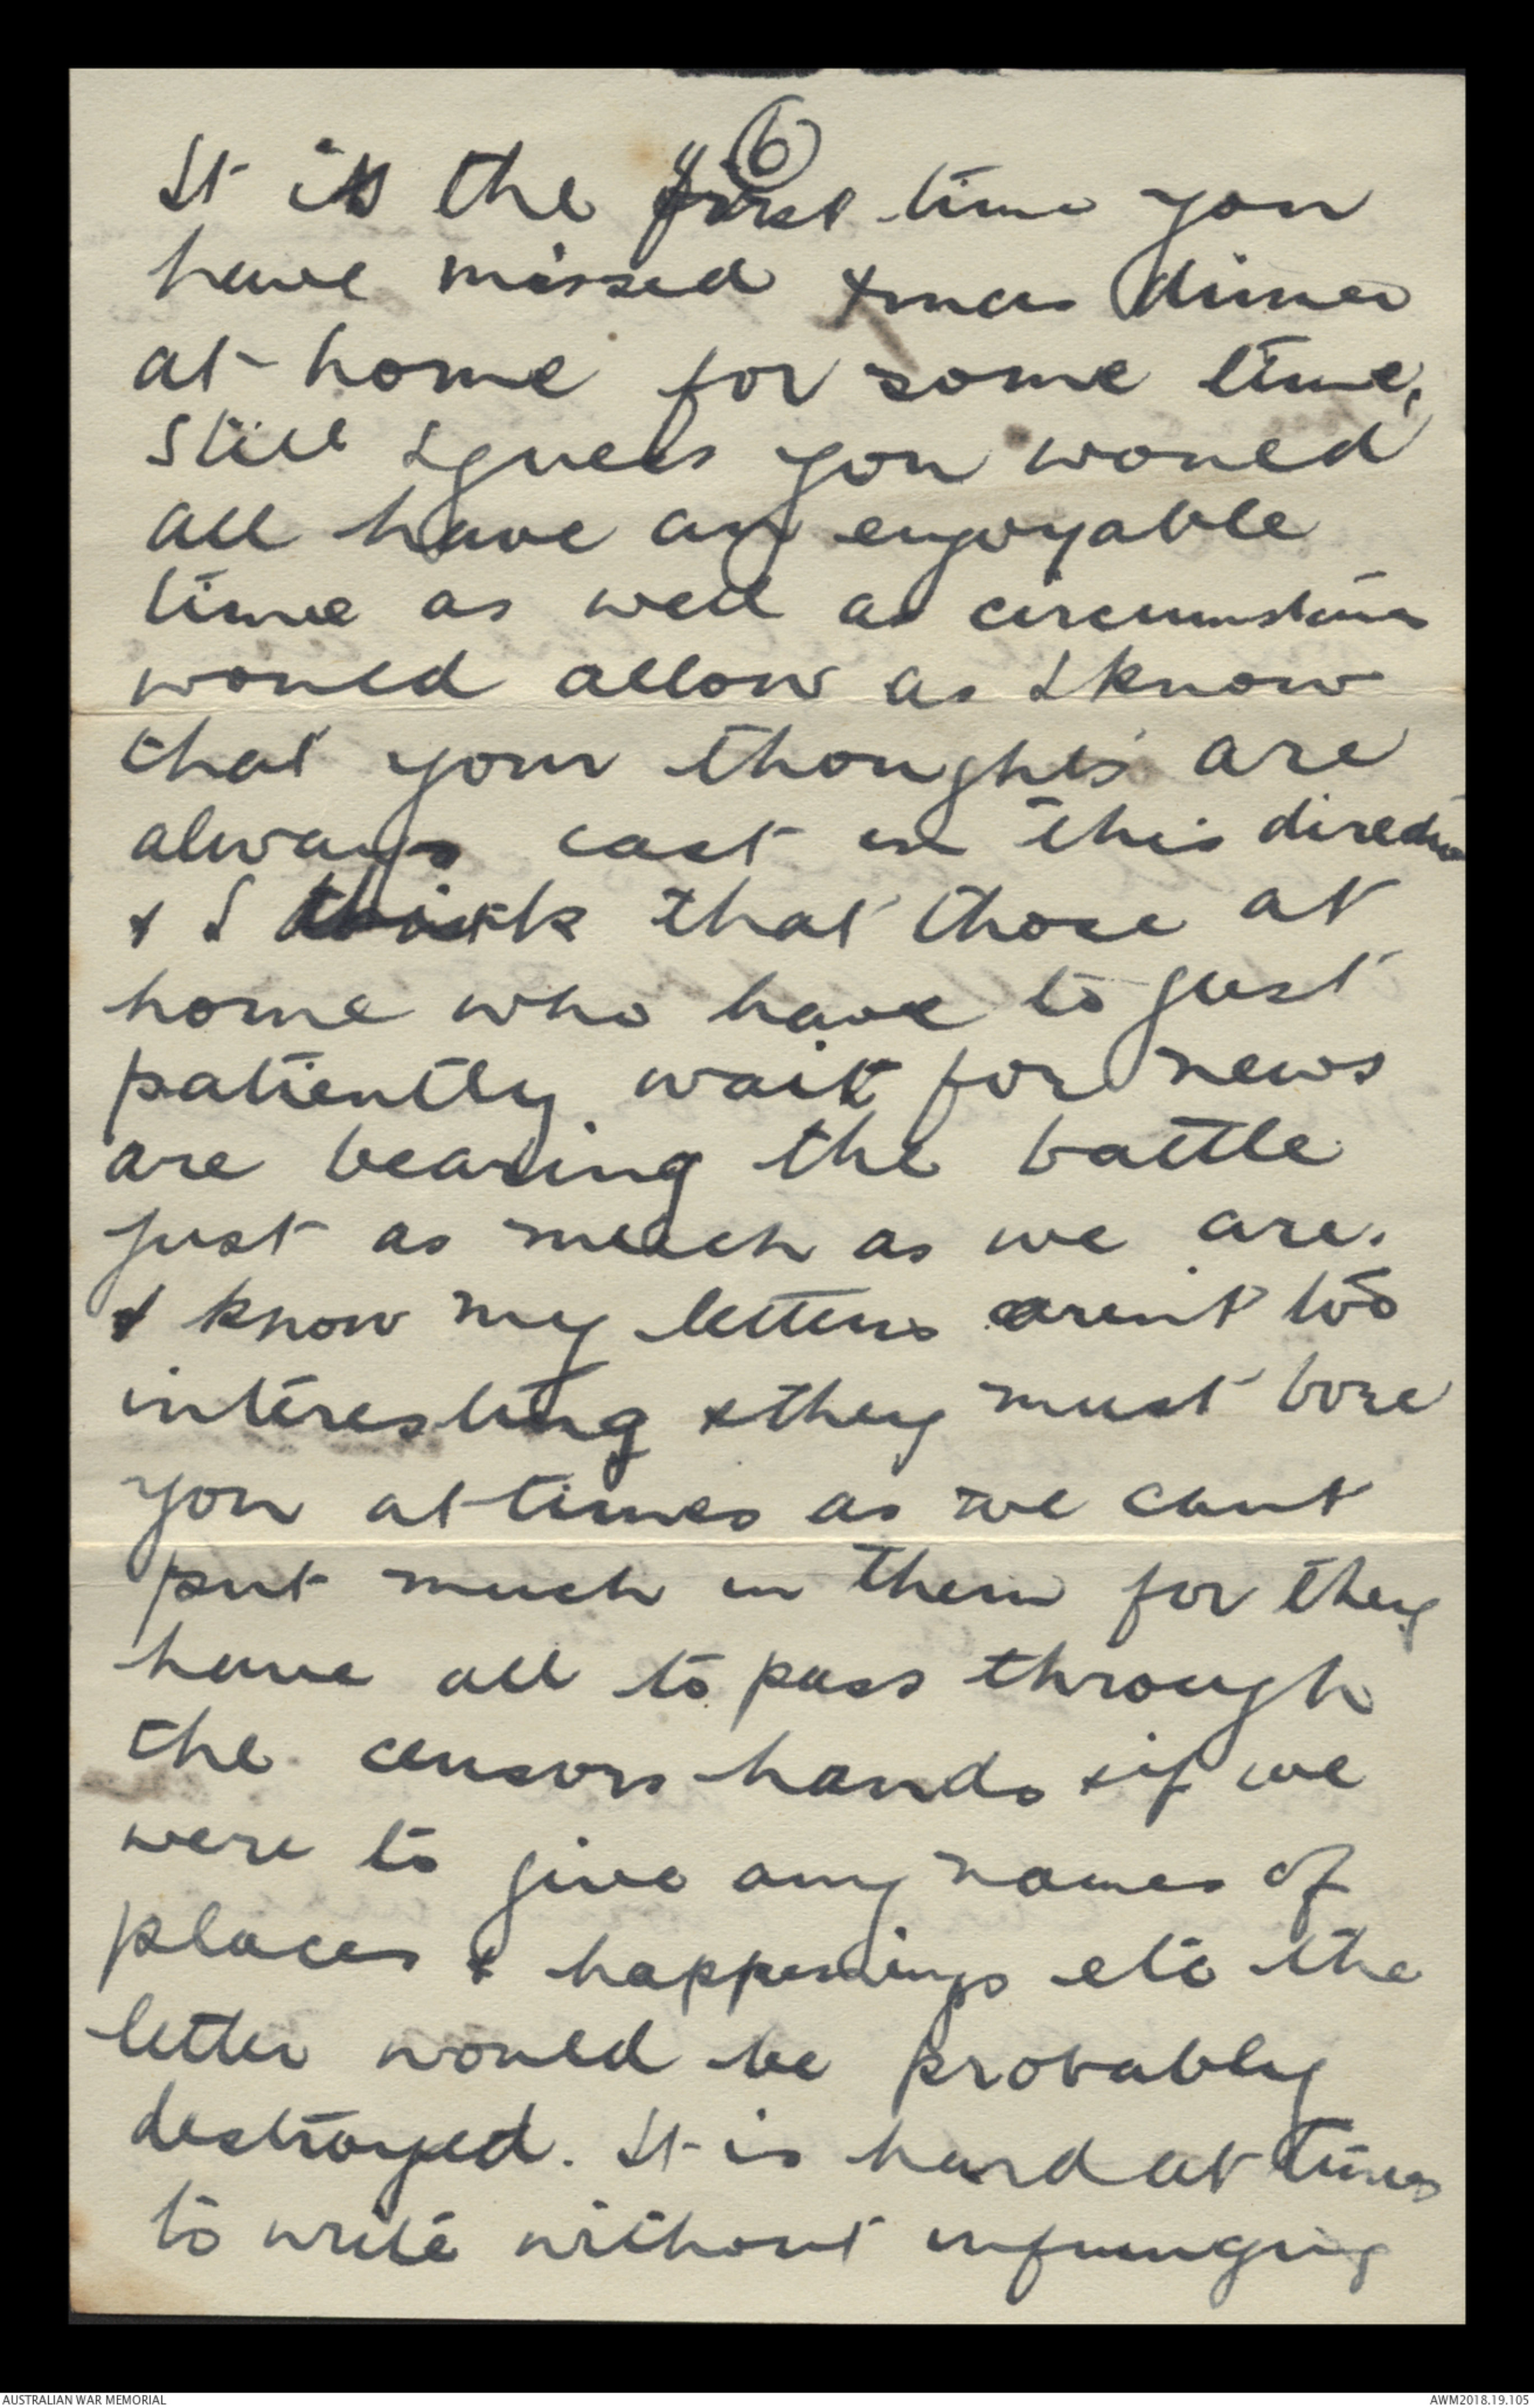 6
It is the first time you
have missed Xmas dinner
at home for some time,
still I guess you would
all have an enjoyable
time as well as circumstances
would allow as I know
that your thoughts are
always cast in this direction
& I think that those at
home who have to just
patiently wait for news
are bearing the battle
just as much as we are.
I know my letters arent too
interesting & they must bore
you at times as we cant
put much in them for they
have all to pass through
the censors hands & if we
were to give any names of
places & happenings etc the
letter would be probably
destroyed. It is hard at times
to write without infringing
AUSTRALIAN WAR MEMORIAL
AWM2018.19.105